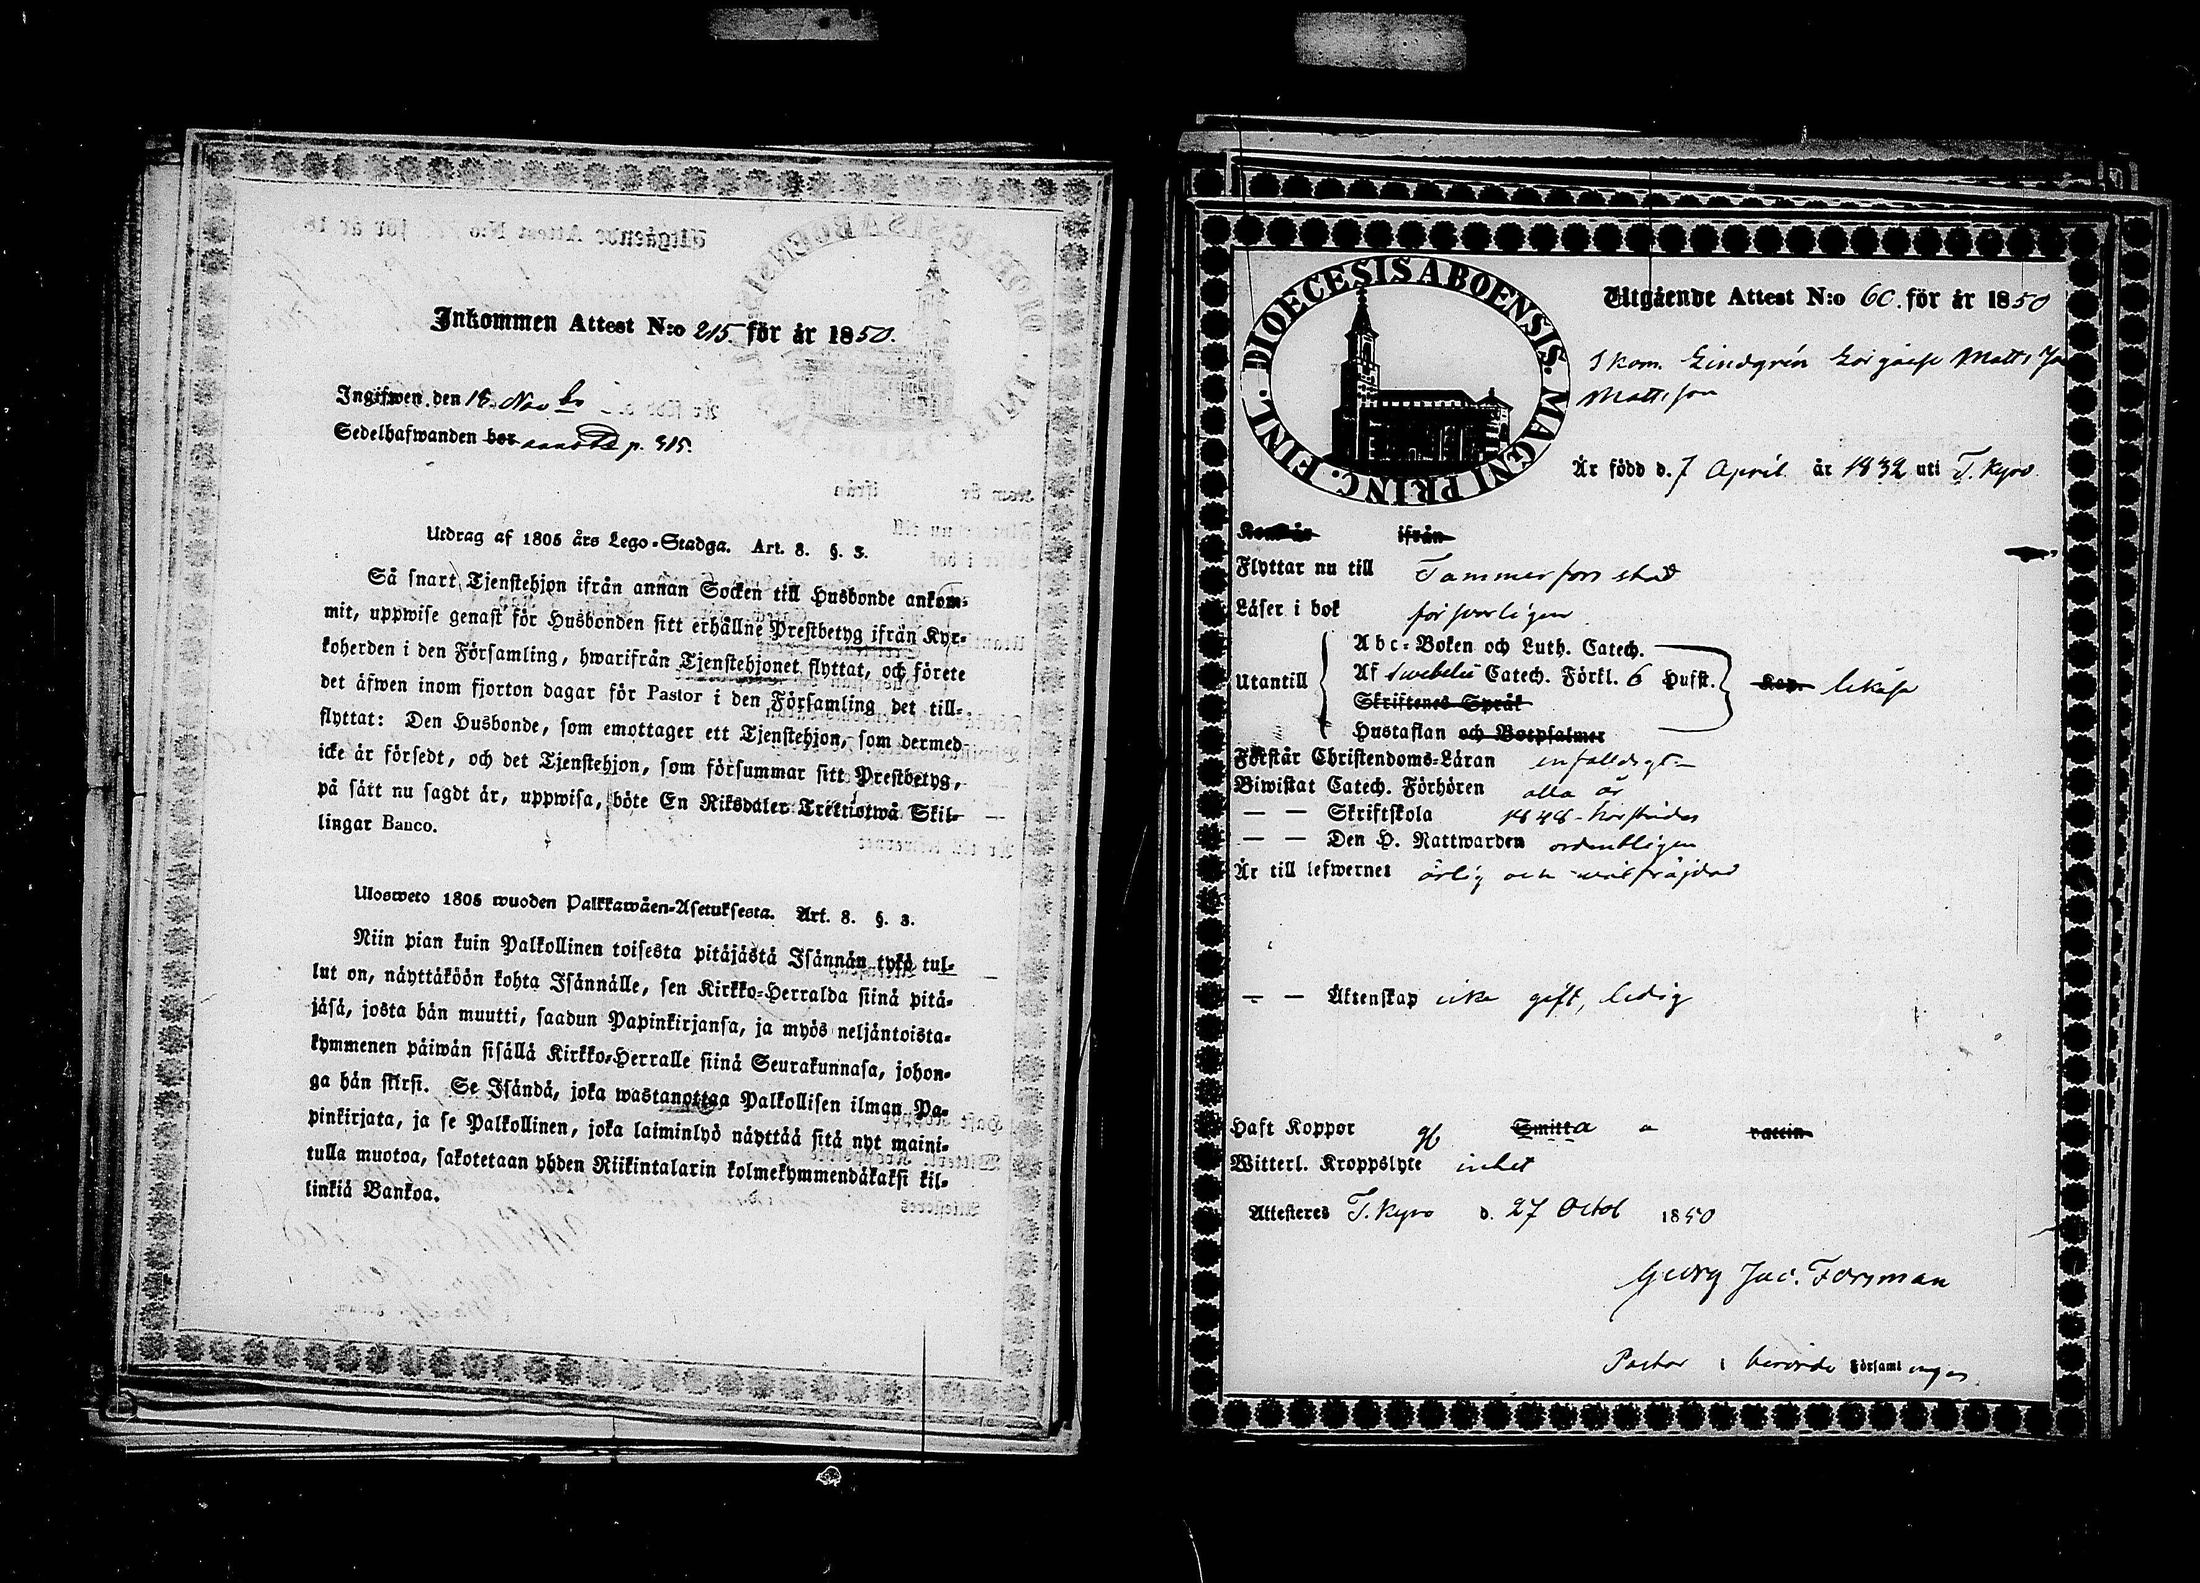 Inkommen Attest N:o 215. för år 1850.
Ingifwen den 18. Nov
Sedelhafwanden bor p. 315.
Utdrag af 1805 års Lego-Stadga. Art. 8. §. 3.
Så snart Tjenstehjon ifrån annan Socken till Husbonde ankom-
mit, uppwise genast för Husbonden sitt erhållne Prestbetyg ifrån Kyr-
koherden i den Församling, hwarifrån Tjenstehjonet flyttat, och förete
det äfwen inom fjorton dagar för Pastor i den Församling det till-
flyttat: Den Husbonde, som emottager ett Tjenstehjon, som dermed
icke är försedt, och det Tjenstehjon, som försummar sitt Prestbetyg,
på sätt nu sagdt är, uppwisa, böte En Riksdaler Trettiotwå Skil-
lingar Banco.
Ulosweto 1805 wuoden Palkkawäen-Asetuksesta. Art. 8. §. 3.
Niin pian kuin Palkollinen toisesta pitäjästä Isännän tykö tul-
lut on, näyttäköön kohta Isännälle, sen Kirkko-Herralda siinä pitä-
jäsä, josta hän muutti, saadun Papinkirjansa, ja myös neljäntoista-
kymmenen päiwän sisällä Kirkko-Herralle siinä Seurakunnasa, johon-
ga hän siirsi. Se Isändä, joka wastanottaa Palkollisen ilman Pa-
pinkirjata, ja se Palkollinen, joka laiminlyö näyttää sitä nyt maini-
tulla muotoa, sakotetaan yhden Riikintalarin kolmekymmendäkaksi kil-
linkiä Bankoa.
DIOECESIS ABOENSIS. MAGNI PRINC. FINL.
Utgående Attest N:o 60. för år 1850
Skom. Lindgrén Matts
Mattsson
Är född d. 7 April år 1832 uti T. Kyro
Kom är ifrån
Flyttar nu till Tammerfors stad
Läser i bok försvarligen
Abc-Boken och Luth. Catech.
Utantill Af Swebelii Catech. Förkl. 6 Hufst. Kan likaså
Skriftenes Språk
Hustaflan och Botpsalmer
Förstår Christendoms-Läran enfaldigt
Biwistat Catech. Förhören alla år
— — Skriftskola 1848
— — Den H. Nattwarden ordentligen
Är till lefwernet ärlig och välfräjdad
— — Äktenskap icke gift, ledig
Haft Koppor Smitta vaccin
Witterl. Kroppslyte intet
Attesteres T. Kyro d. 27 Octob 1850
Georg Jac. Forsman
Pastor i berörde Församlingen